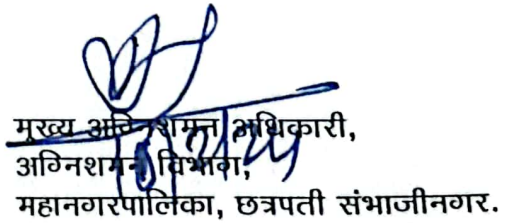 मुख्य अग्निशमन अधिकारी,
अग्निशमन विभाग,
महानगरपालिका, छत्रपती संभाजीनगर.